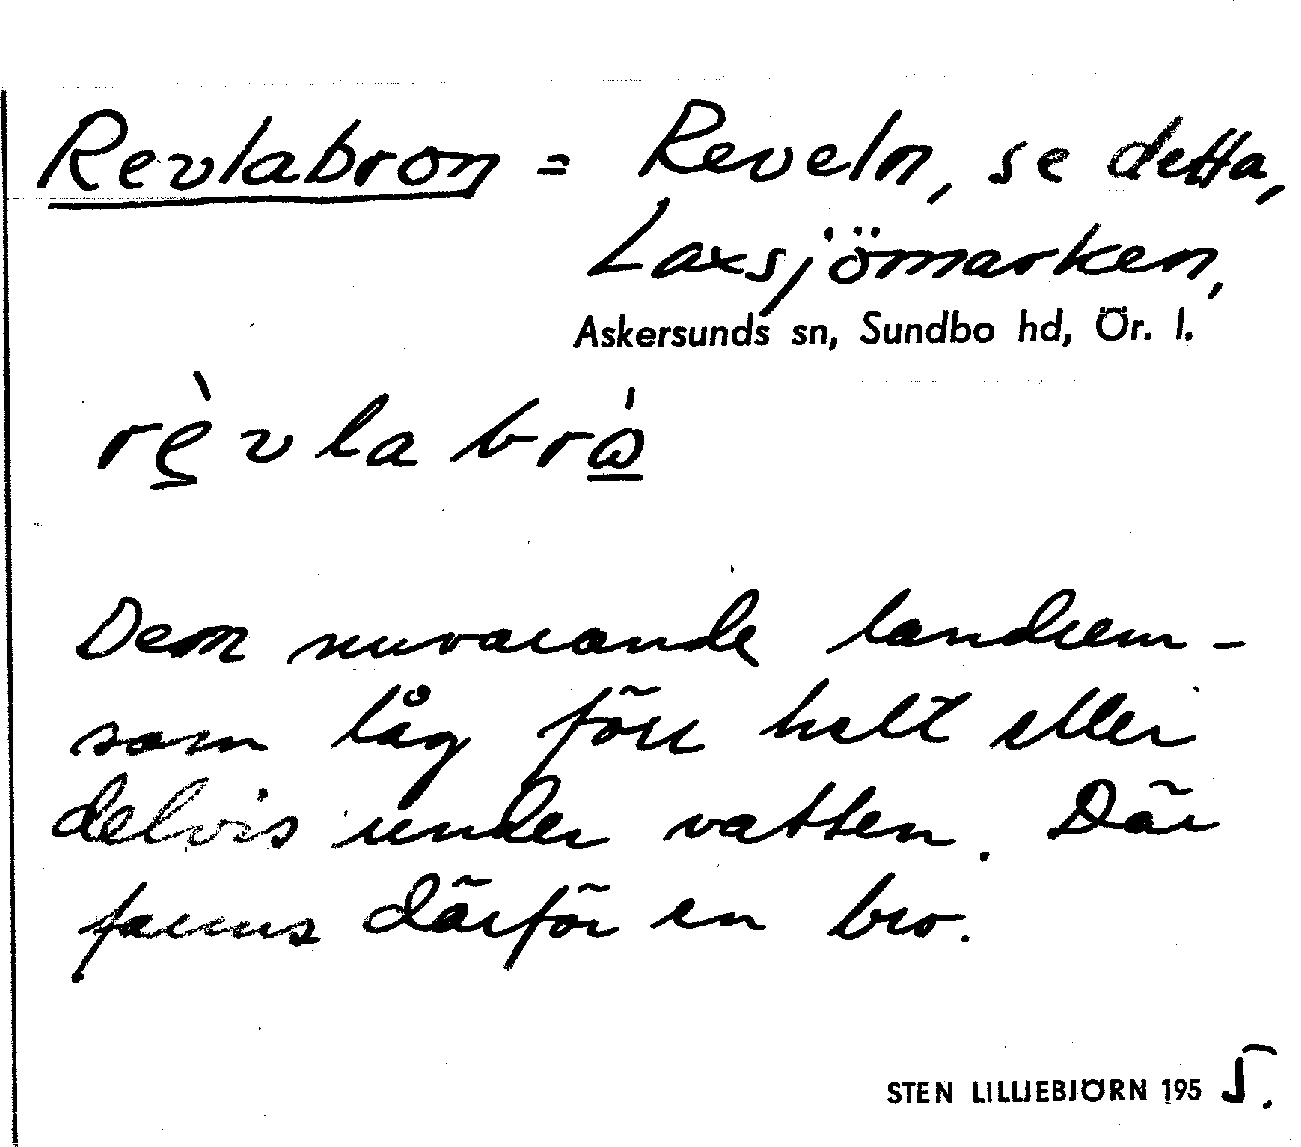 Revlabron = Reveln, se detta,
Laxsjömarken,
Askersunds sn, Sundbo hd, Ör. l.
rèvla brὼ
Den nuvarande landrem-
som låg förr helt eller
delvis under vatten. Där
fanns därför en bro.
STEN LILLIEBJÖRN 1955.